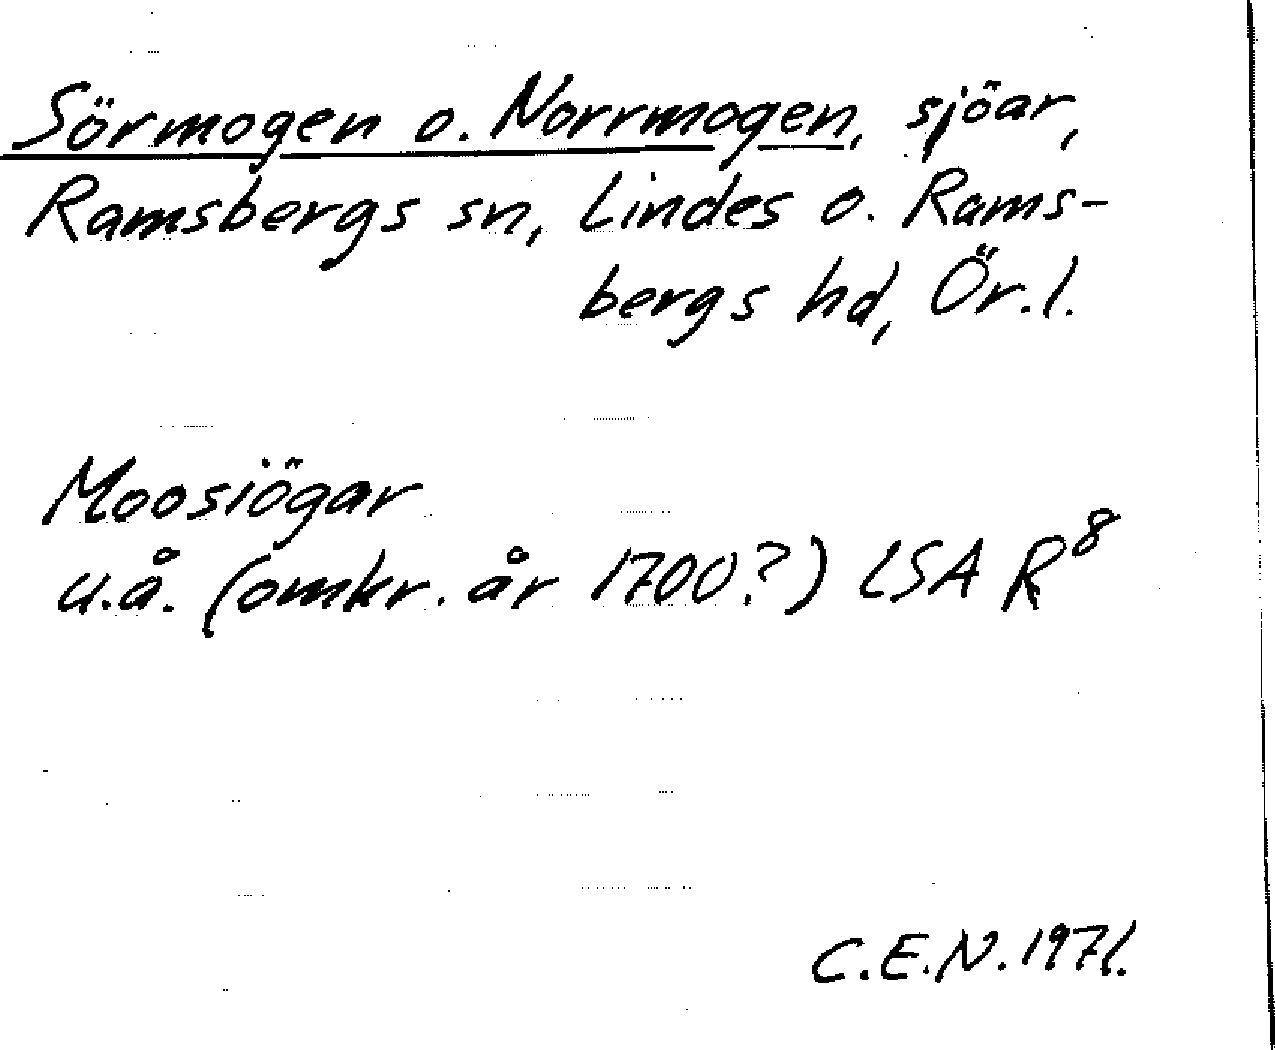 Sörmogen o. Norrmogen, sjöar,
Ramsbergs sn, Lindes o. Rams-
bergs hd, Ör.l.
Moosiögar
u.å. (omkr. år 1700?) LSA R⁸
C.E.N. 1971.